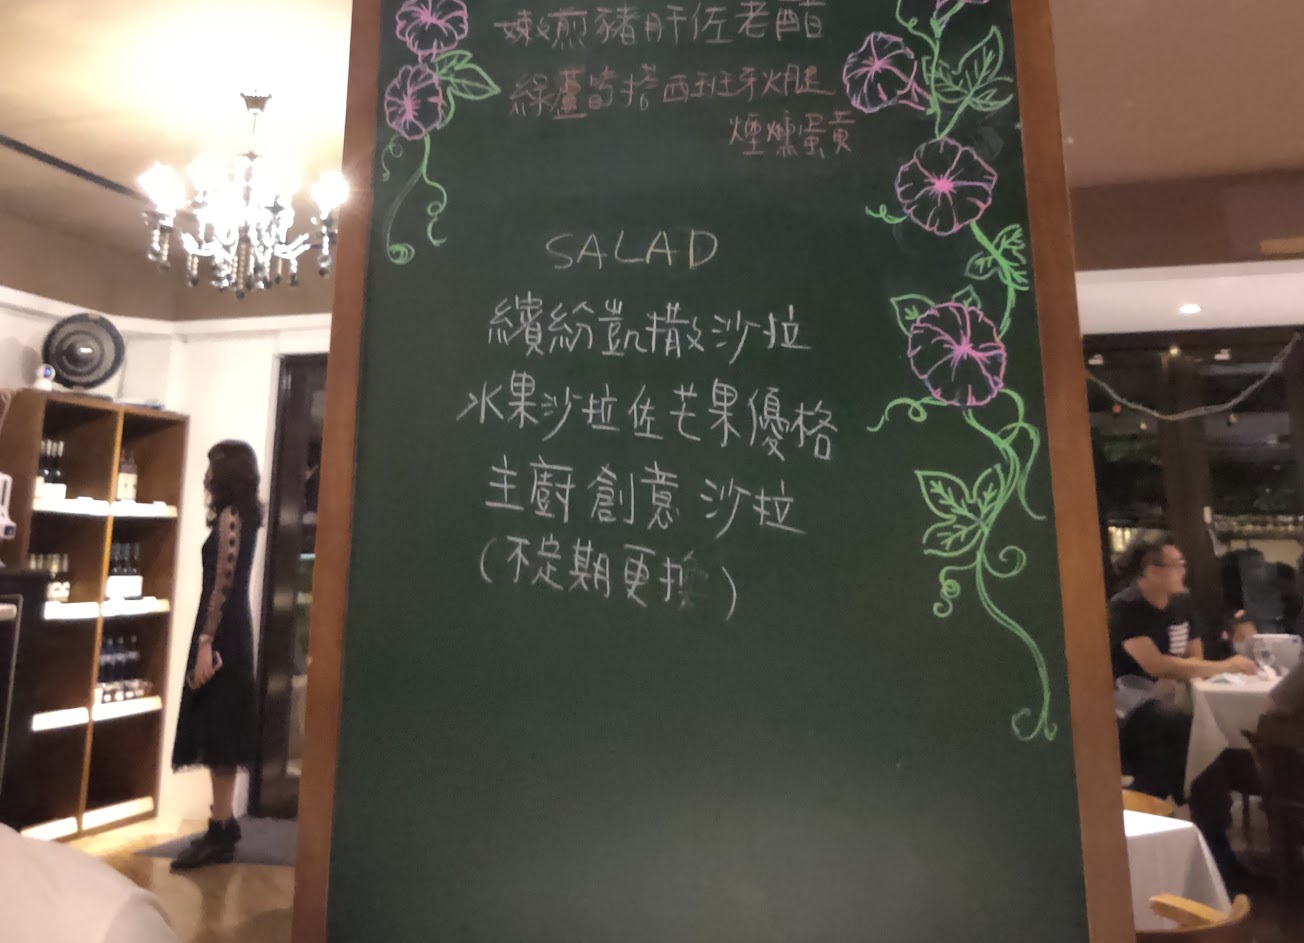 嫩煎豬肝佐老醋
綠蘆筍搭西班牙火腿
煙燻蛋黃
SALAD
繽紛凱撒沙拉
水果沙拉佐芒果優格
主廚創意沙拉
(不定期更換)